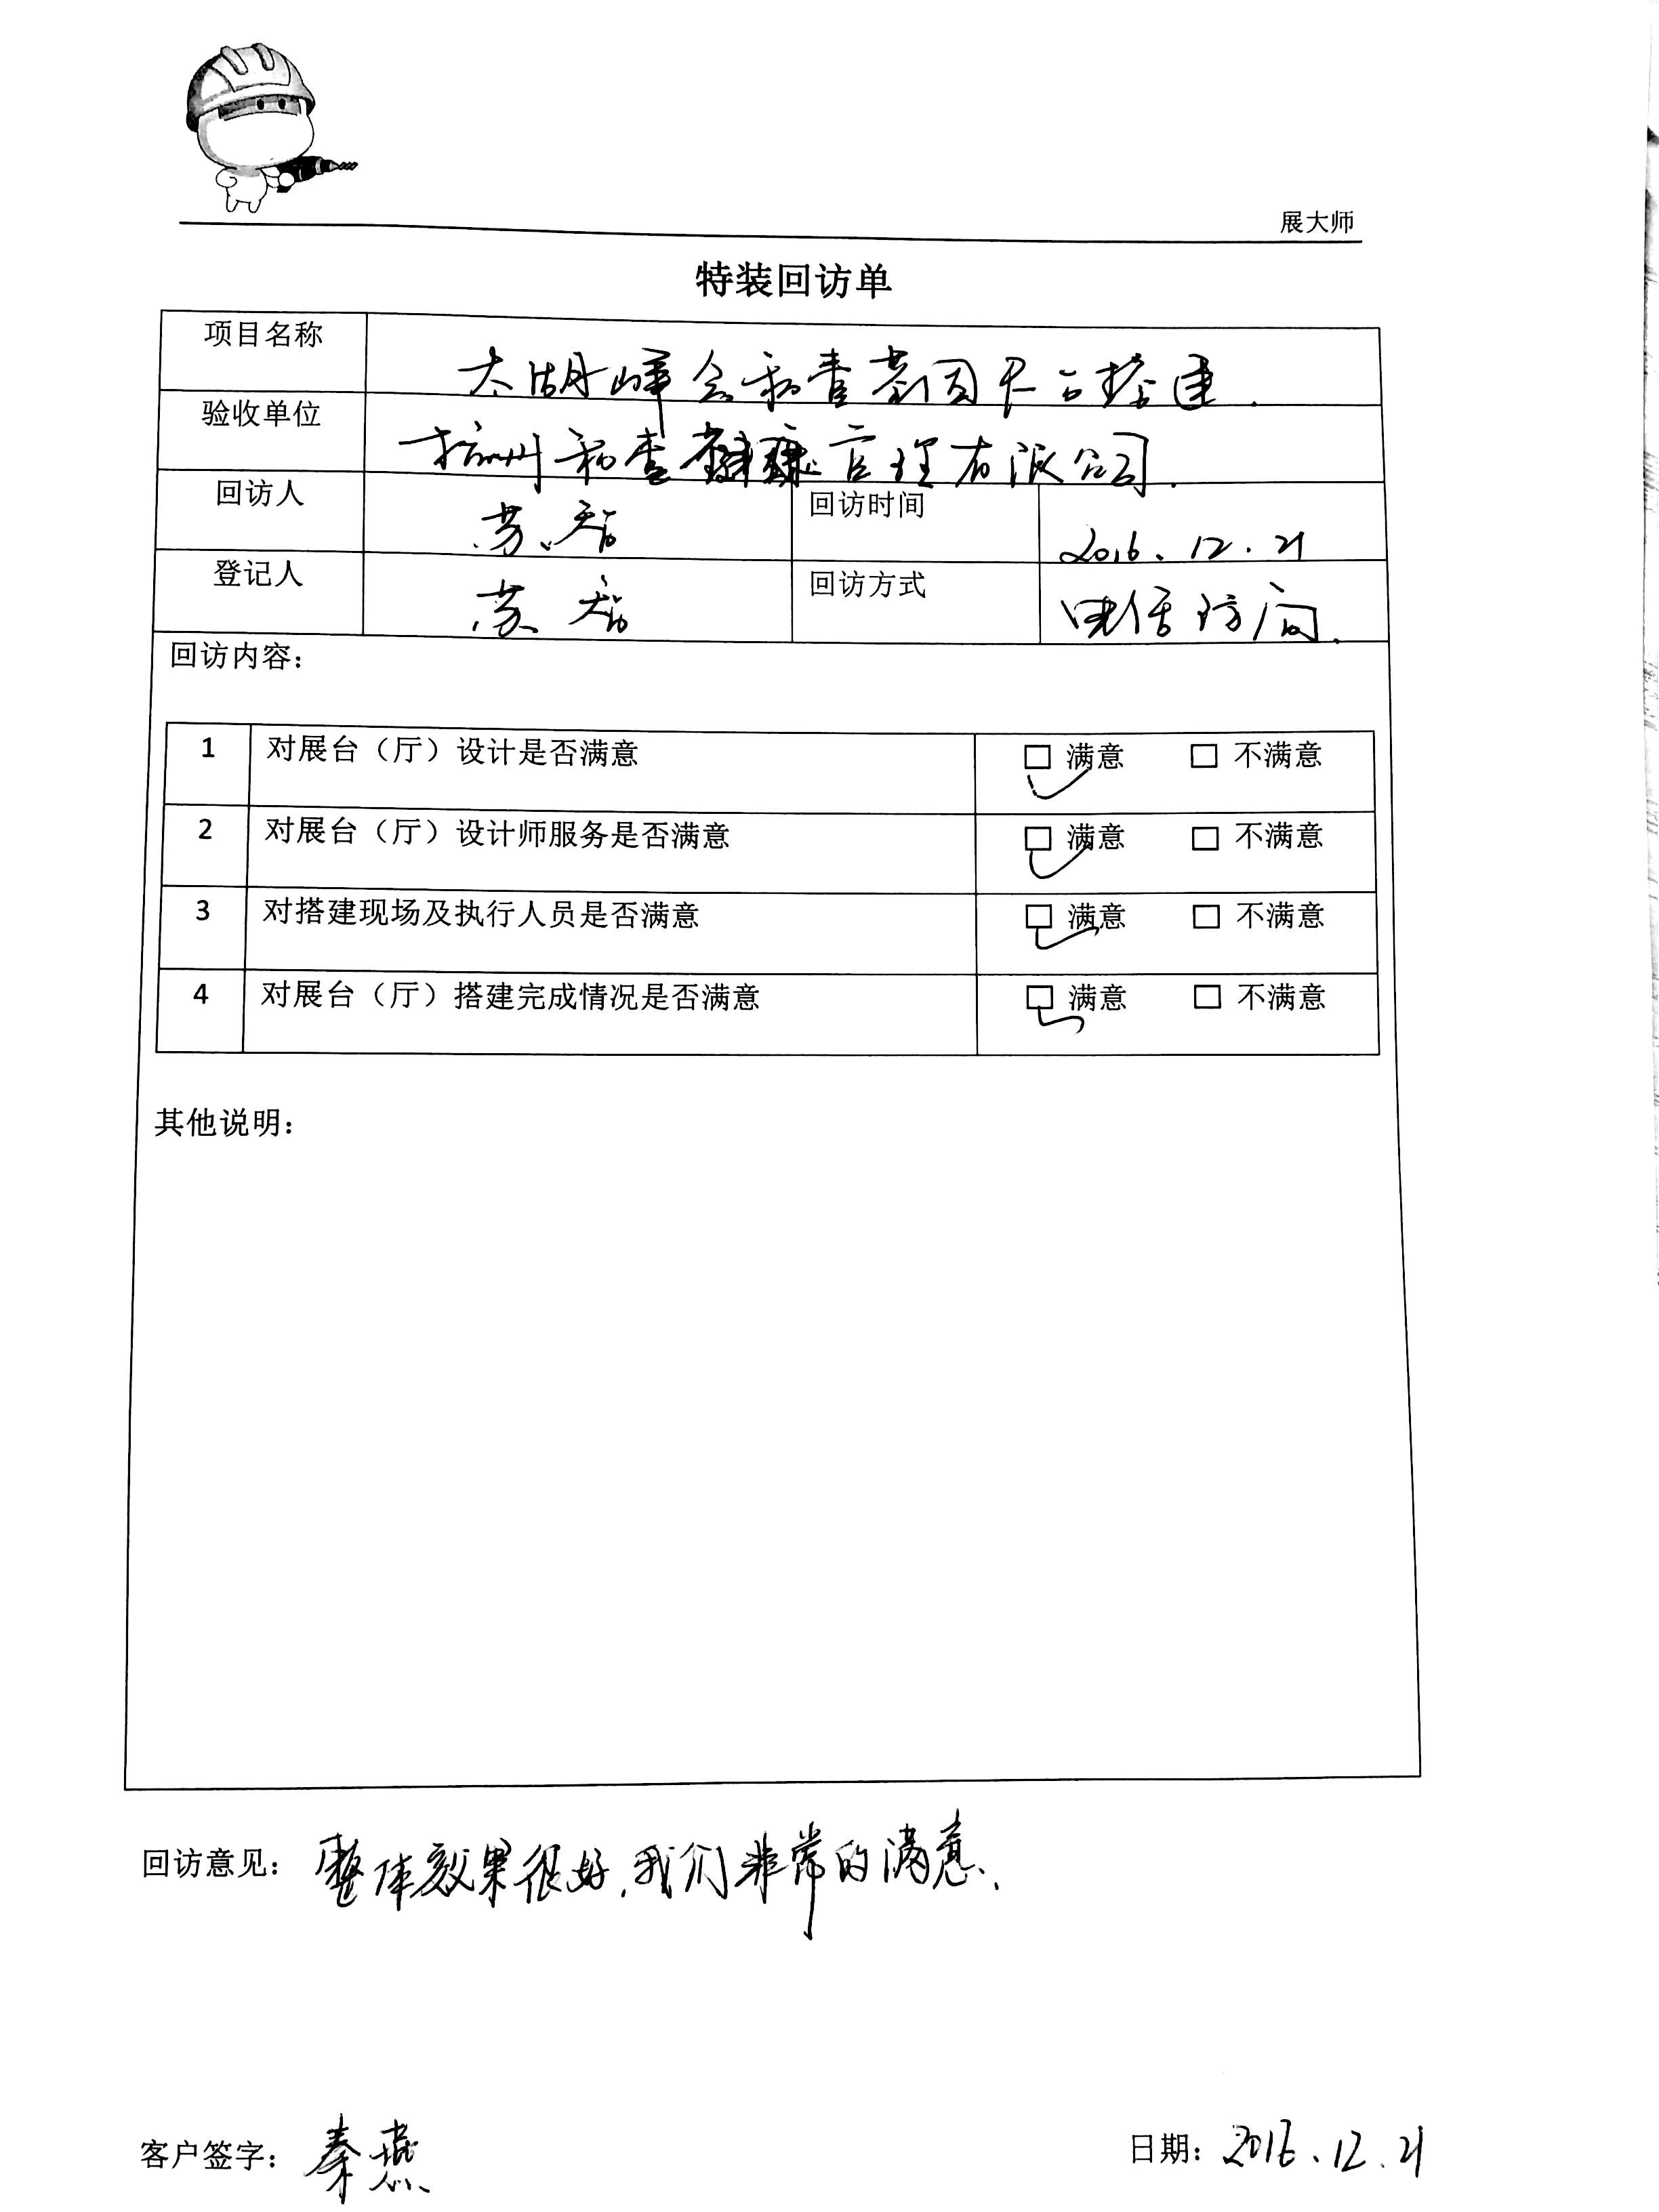 展大师
特装回访单
项目名称 太湖峰会和壹基因平台搭建.
验收单位 杭州和壹 管理有限公司.
回访人 苏 回访时间 2016.12.21
登记人 苏 回访方式 电话访问.
回访内容：
1 对展台（厅）设计是否满意 □ 满意 □ 不满意
2 对展台（厅）设计师服务是否满意 □ 满意 □ 不满意
3 对搭建现场及执行人员是否满意 □ 满意 □ 不满意
4 对展台（厅）搭建完成情况是否满意 □ 满意 □ 不满意
其他说明：
回访意见：整体效果很好,我们非常的满意、
客户签字：秦燕 日期：2016.12.21